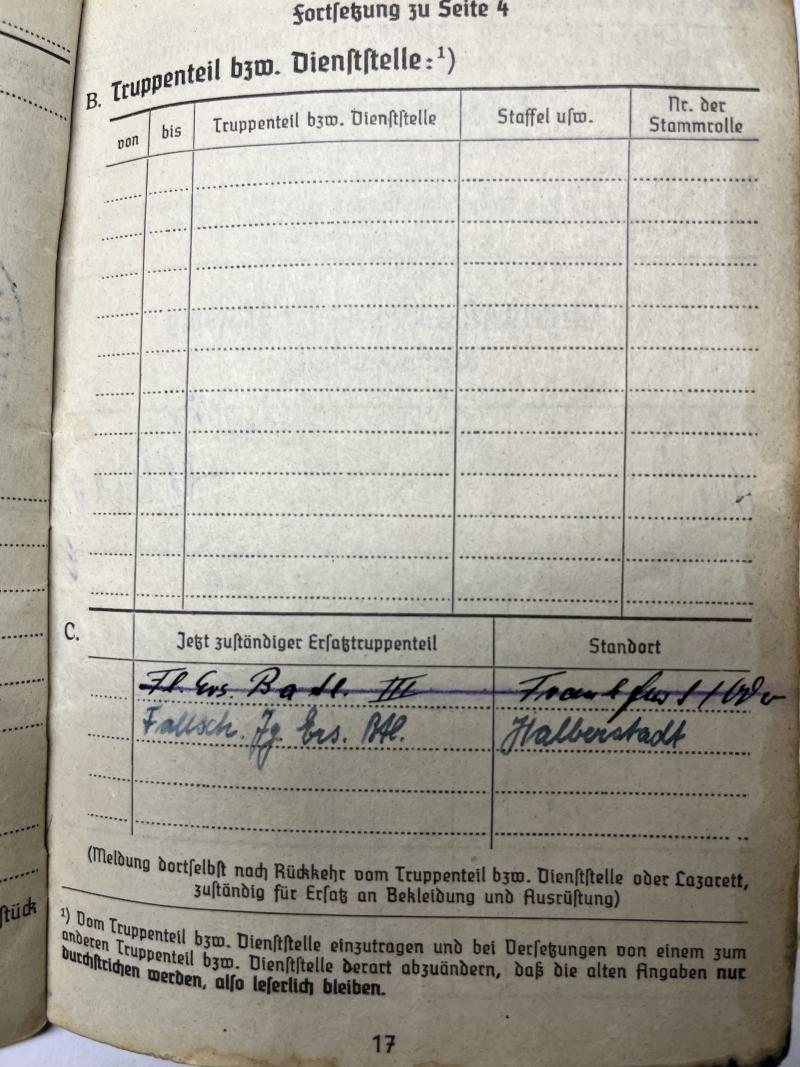 Fortſetzung zu Seite 4
B. Truppenteil bzw. Dienſtſtelle:¹)
von bis Truppenteil bzw. Dienſtſtelle Staffel uſw. Nr. der Stammrolle
C. Jetzt zuſtändiger Erſatztruppenteil Standort
Fl. Ers. Batl. III Frankfurt/Oder
Fallsch. Jg. Ers. Btl. Halberstadt
(Meldung dortſelbſt nach Rückkehr vom Truppenteil bzw. Dienſtſtelle oder Lazarett,
zuſtändig für Erſatz an Bekleidung und Ausrüſtung)
¹) Vom Truppenteil bzw. Dienſtſtelle einzutragen und bei Verſetzungen von einem zum
anderen Truppenteil bzw. Dienſtſtelle derart abzuändern, daß die alten Angaben nur
durchſtrichen werden, alſo leſerlich bleiben.
ſtück
17